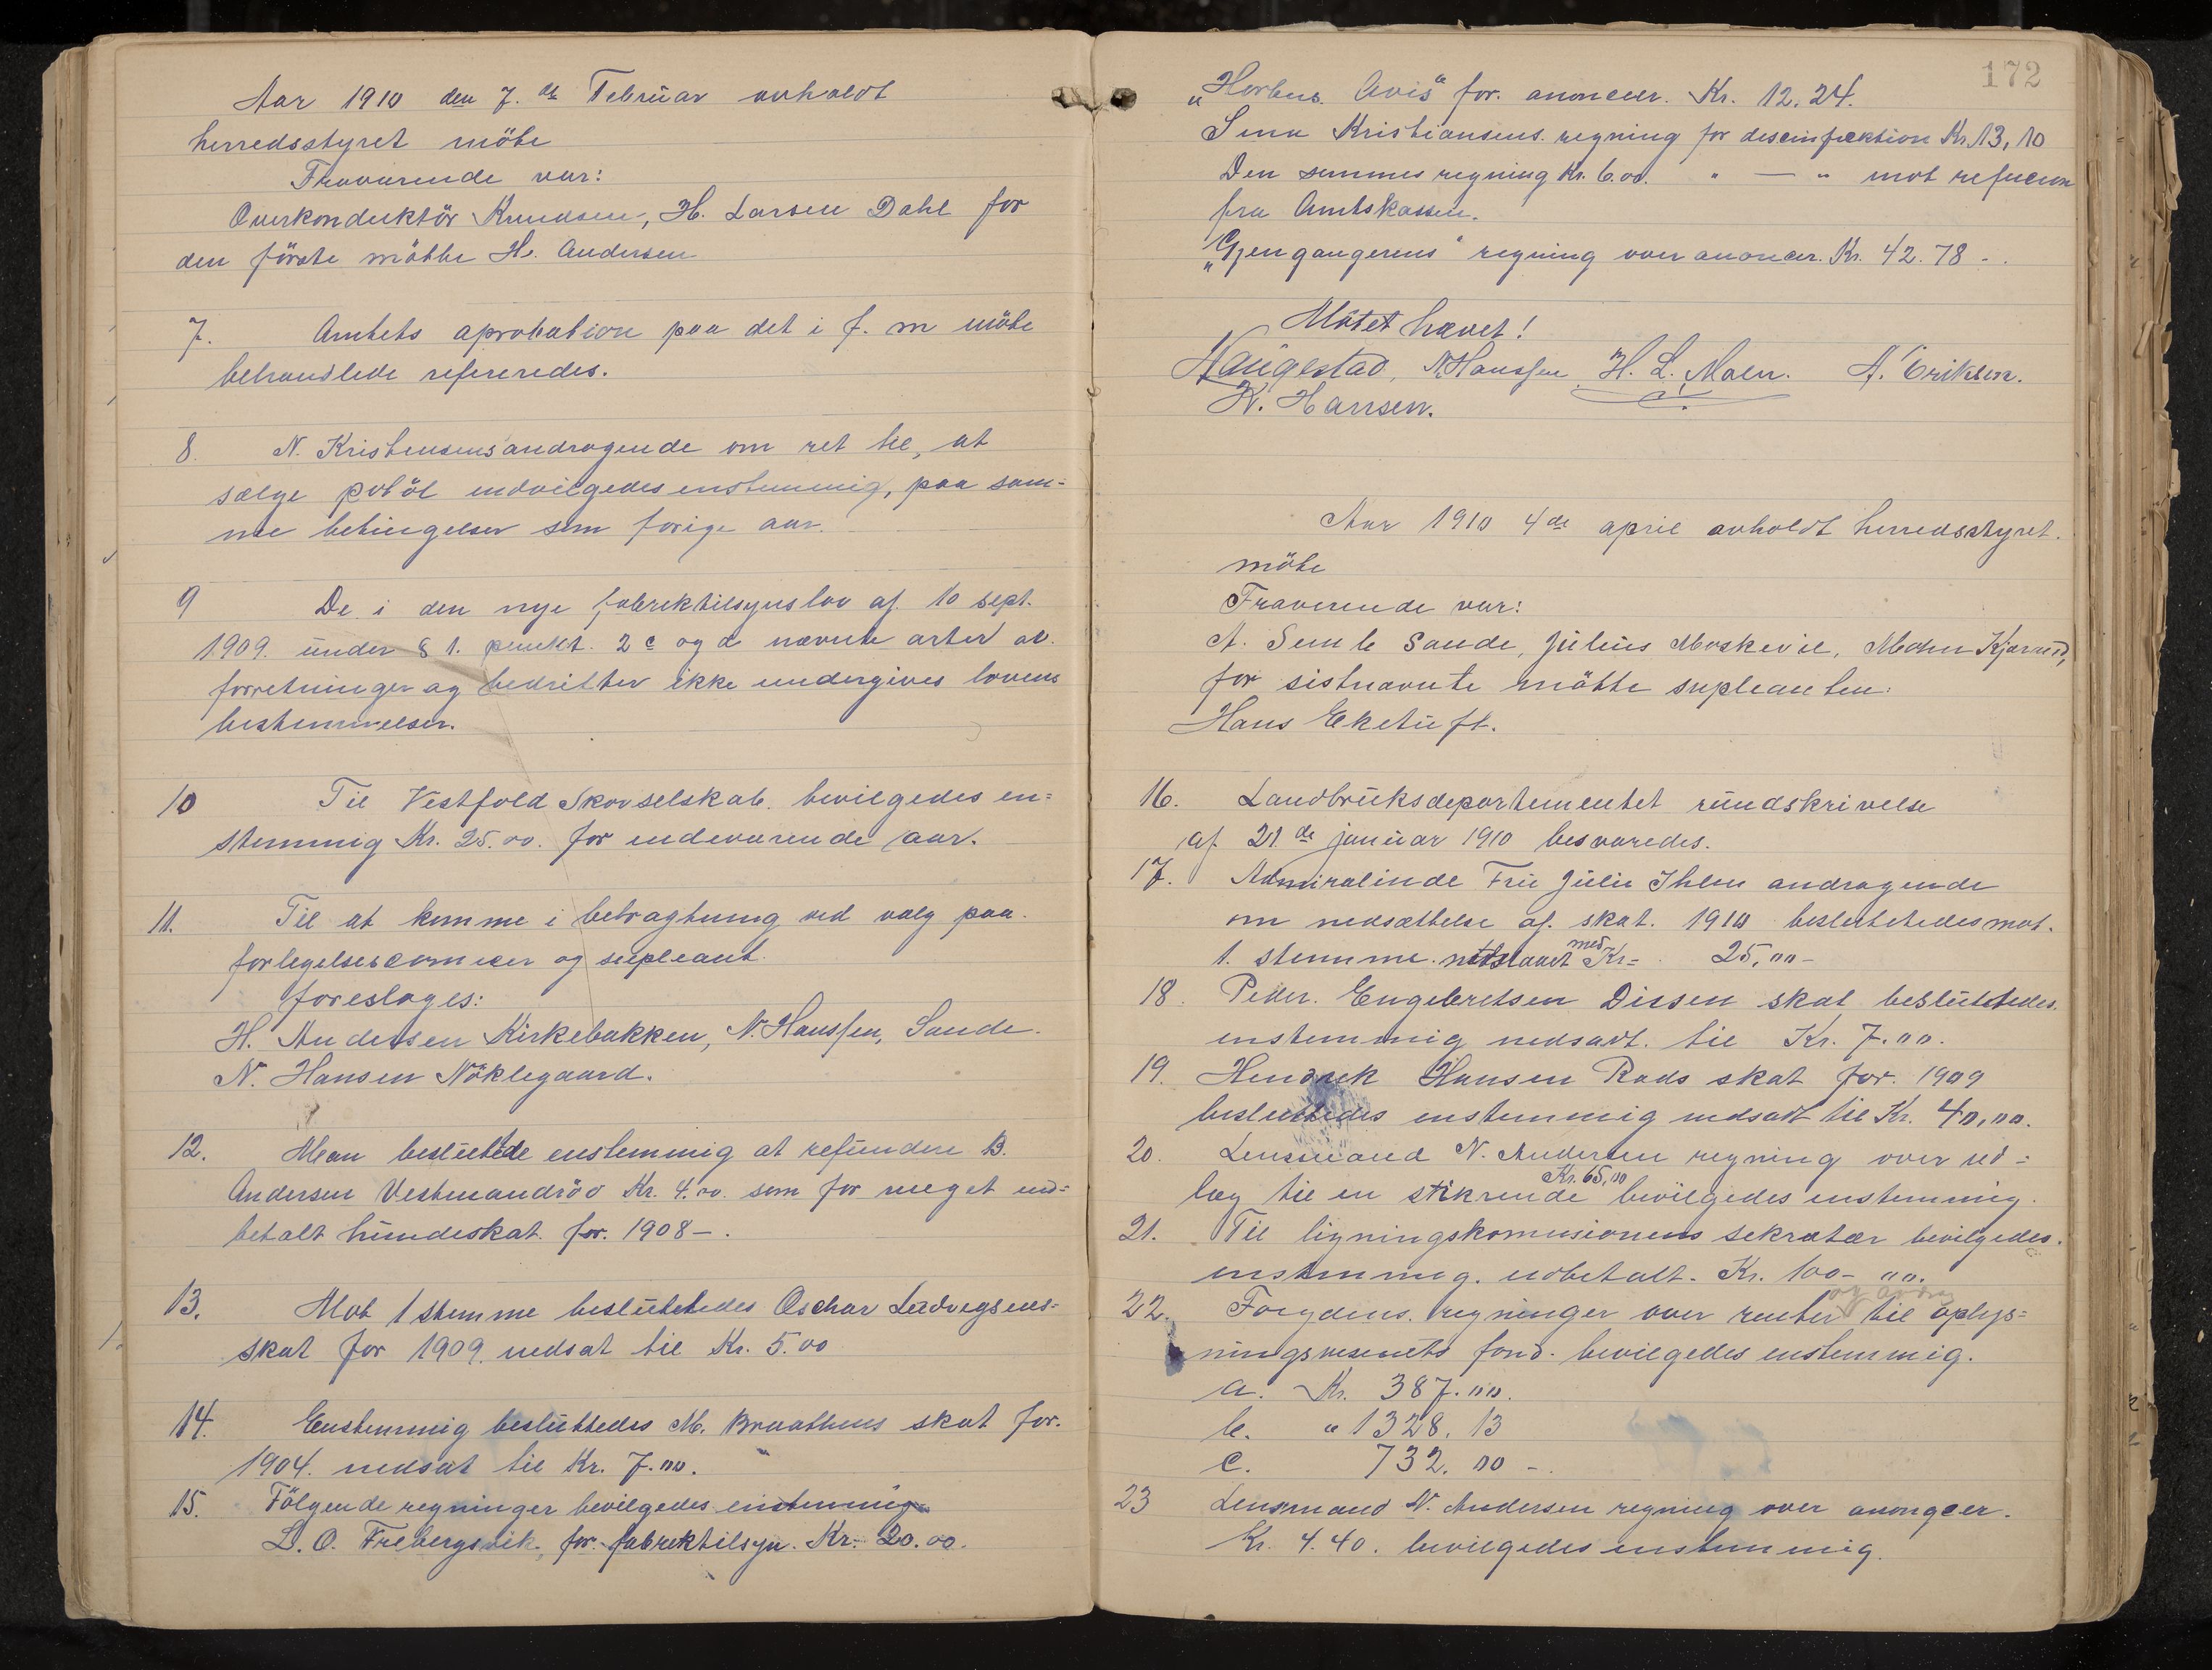 Aar 1910 den 7. de Februar avholdt
herredsstyret möte
Fraværende var:
Overkonduktör Knudsen, H. Larsen Dahl for
den förste mötte H. Andersen
7. Amtets aprobation paa det i f. m möte
behandlede refereredes.
8. N. Kristensens andragende om ret til, at
sælge potöl indvilgedes enstemmig, paa sam=
me betingelser som forige aar.
9 De i den nye fabriktilsynslov af 10 sept.
1909. under § 1. punkt. 2 c og d nævnte arter av
forretninger og bedrifter ikke undergives lovens
bestemmelser.
10 Til Vestfold Skovselskab. bevilgedes en=
stemmig Kr. 25.00. for indeværende aar.
11. Til at komme i betragtning ved valg paa
forlegelses og supleant.
foreslages:
H. Andersen Kirkebakken, N. Hanssen, Sande.
N. Hansen Nöklegaard.
12. Man besluttede enstemmig at refundere B.
Andersen Vestmandröd Kr. 4.00. som for meget ind=
betalt hundeskat. for. 1908-.
13. Mot 1 stemme besluttedes Oschar Ludvigsens=
skat for 1909. nedsat til Kr. 5.00
14. Enstemmig besluttedes M. Braathens skat for.
1904. nedsat til Kr. 7.00.
15. Fölgende regninger bevilgedes enstemmig
L. O. Frebergsvik, for fabriktilsyn. Kr. 20.00.
172
„Hortens Avis“ for. anoncer. Kr. 12.24.
Sina Kristiansens. regning for desinfektion Kr. 13,10
Den sammes regning Kr. 6.00. " — " mot refucion
fra Amtskassen.
„Gjengangerens“ regning over anoncer. Kr. 42.78 -.
Mötet hævet!
Haugestad, N. Hanssen H. L. Moen. A. Eriksen.
K. Hansen.
Aar 1910 4de april avholdt herredsstyret.
möte
Fraverende var:
A. Semb Sande, Julius Moskevil, Mohn Kjærud,
for sistnævnte mötte supleanten:
Hans Eketuft.
16. Landbruksdepartementet rundskrivelse
af. 21.de januar 1910 besvaredes.
17. Admiralinde Fru Julie Ihlen andragende
om nedsættelse af. skat. 1910 besluttedes mot.
1. stemme nedslaaet med Kr= 25,00-
18. Peder. Engebretsen Dissen skat besluttedes.
enstemmig nedsadt. til Kr. 7.00.
19. Hendrik Hansen Rads skat for. 1909
besluttedes enstemmig nedsadt til Kr. 40,00.
20. Lensmand N. Andersen regning over ud=
læg til en stikrende Kr. 65,00 bevilgedes enstemmig.
21. Til ligningskomisionens sekretær bevilgedes.
enstemmig. udbetalt. Kr. 100- 00.
22. Foigdens. regninger over renter og avdrag til oplys=
ningsvesenets fond. bevilgedes enstemmig.
a. Kr. 387.00.
b. " 1328.13
c. 732.00 -.
23 Lensmand N. Andersen regning over anongcer.
Kr. 4.40. bevilgedes enstemmig.